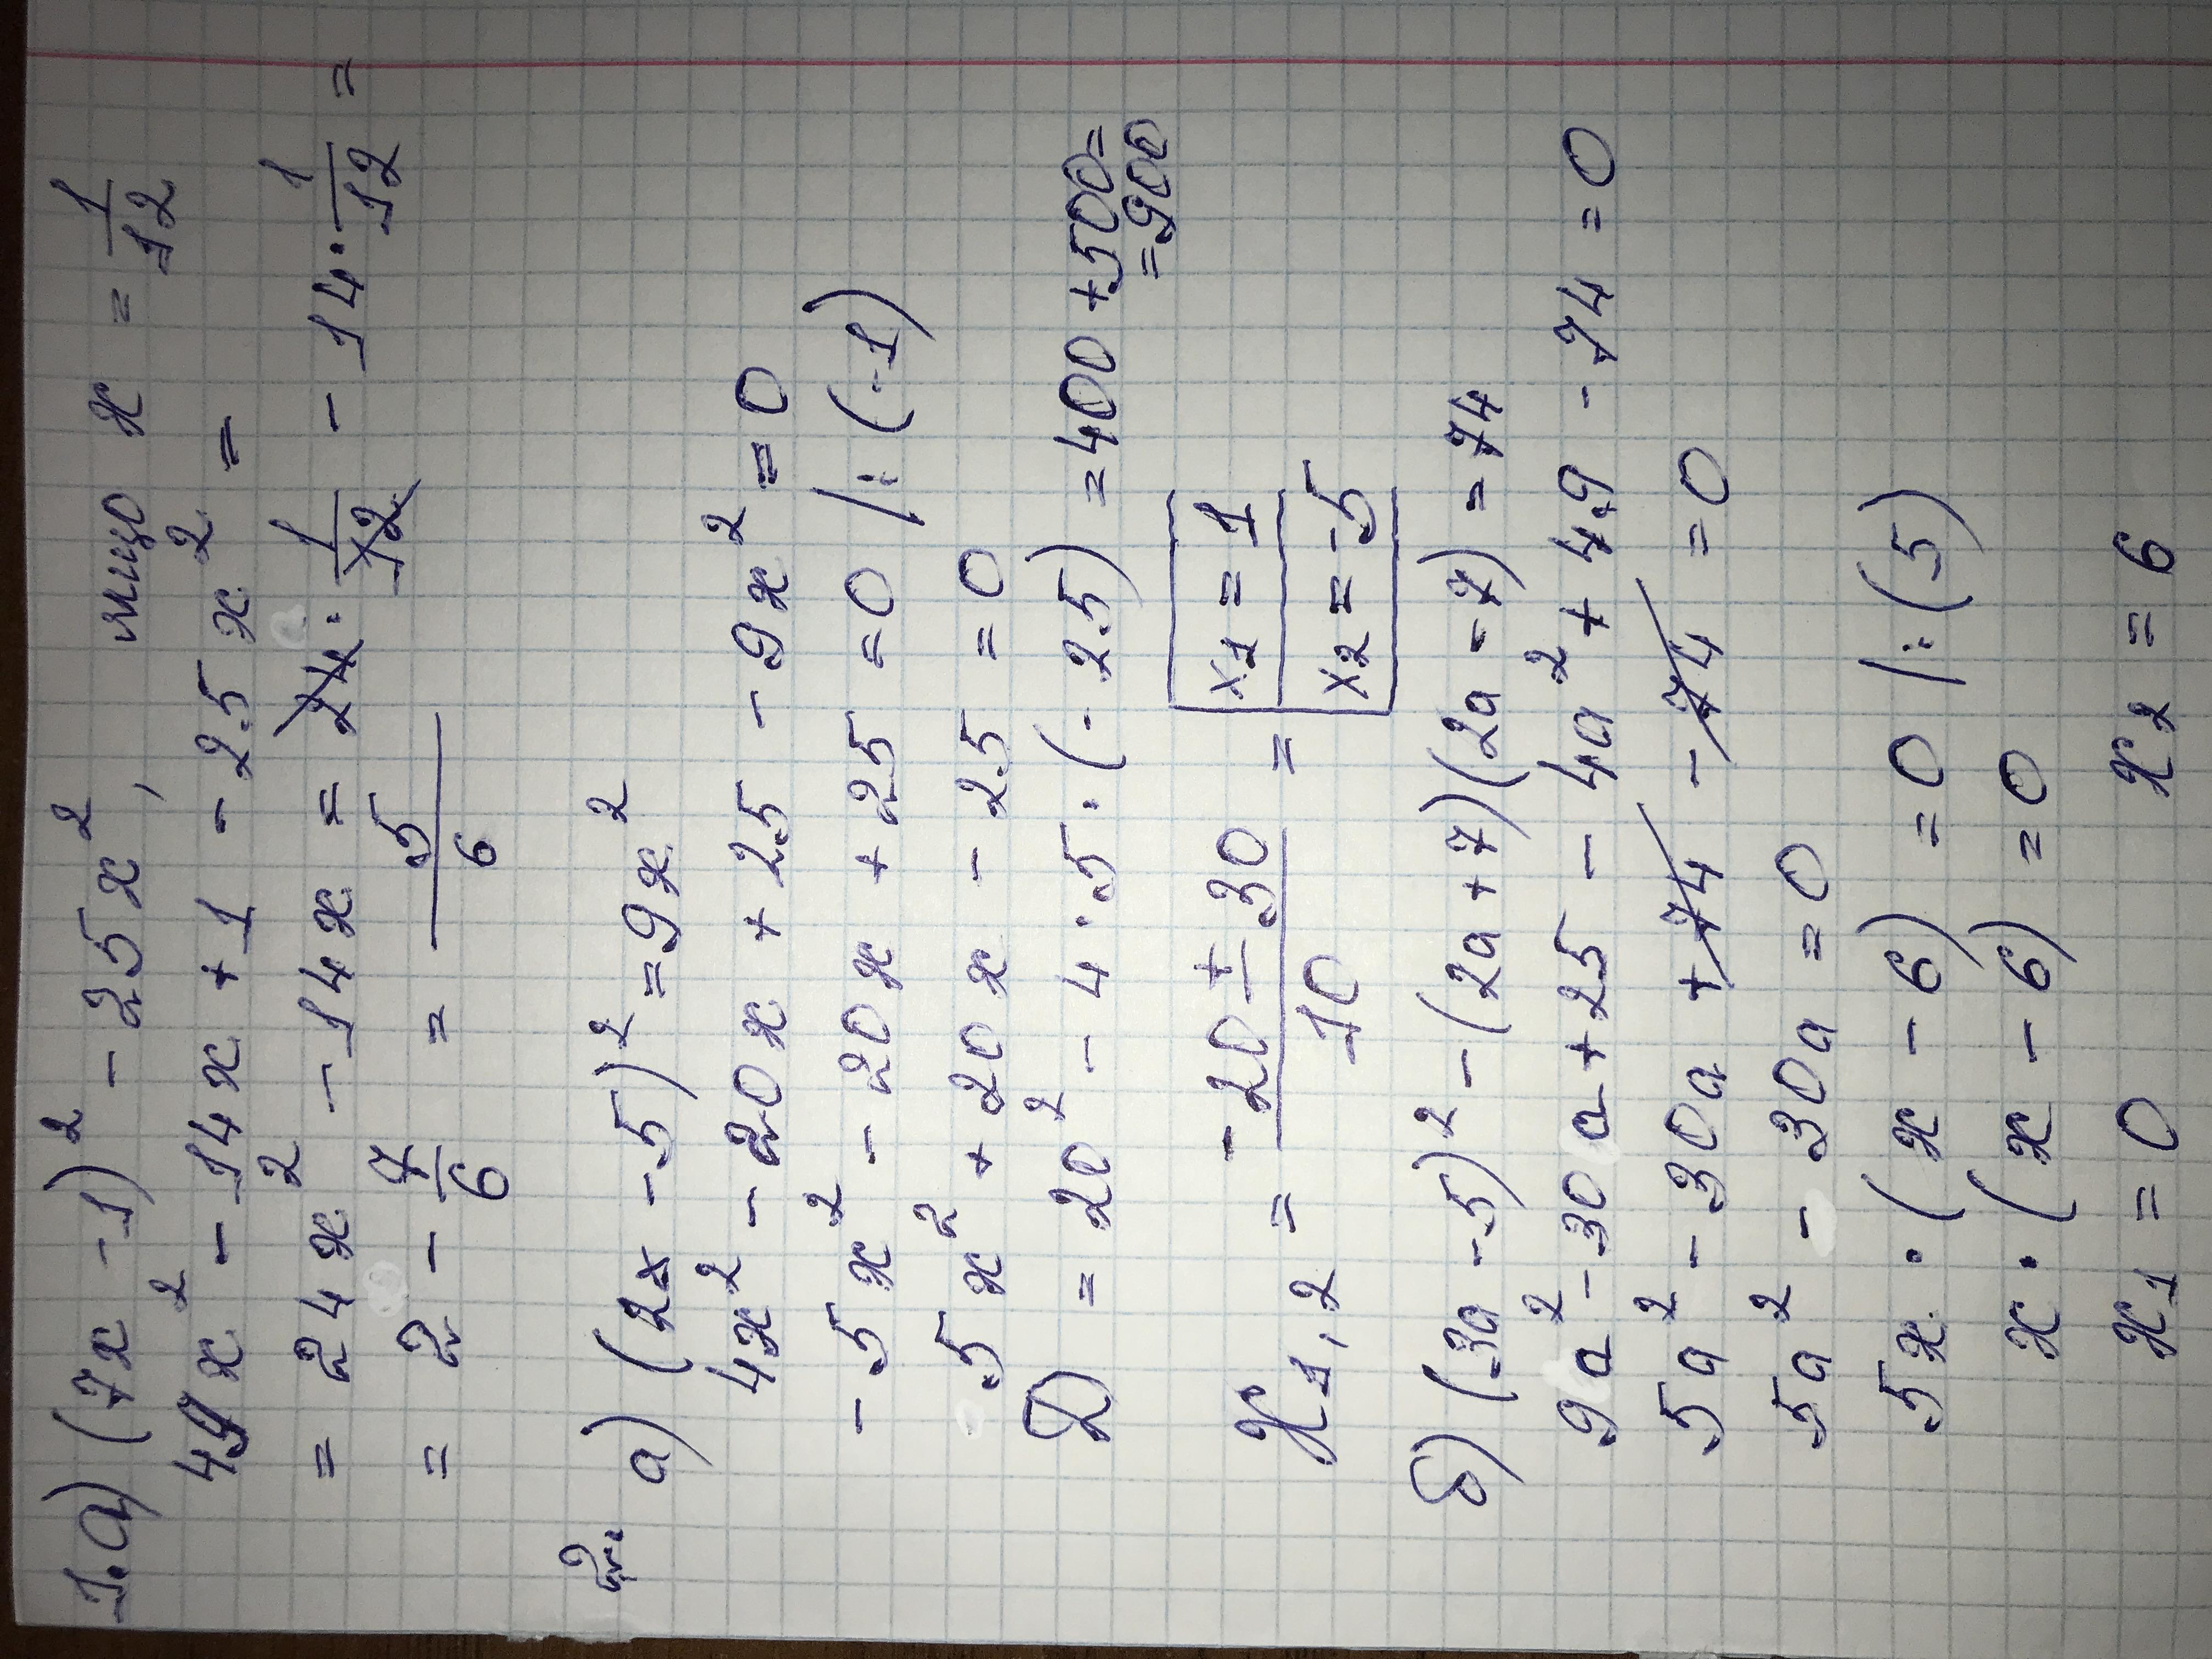 1.а) (7x - 1)² - 25x², якщо x = 1/12
49x² - 14x + 1 - 25x² =
= 24x² - 14x = 24 · 1/12 - 14 · 1/12 =
= 2 - 7/6 = 5/6
2.
а) (2x - 5)² = 9x²
4x² - 20x + 25 - 9x² = 0
- 5x² - 20x + 25 = 0 /: (-1)
5x² + 20x - 25 = 0
D = 20² - 4 · 5 · (-25) = 400 + 500 =
= 900
x1,2 = -20 ± 30 / 10 =
x1 = 1
x2 = -5
б) (3a - 5)² - (2a + 7)(2a - 7) = 74
9a² - 30a + 25 - 4a² + 49 - 74 = 0
5a² - 30a + 74 - 74 = 0
5a² - 30a = 0
5x · (x - 6) = 0 /: (5)
x · (x - 6) = 0
x1 = 0 x2 = 6